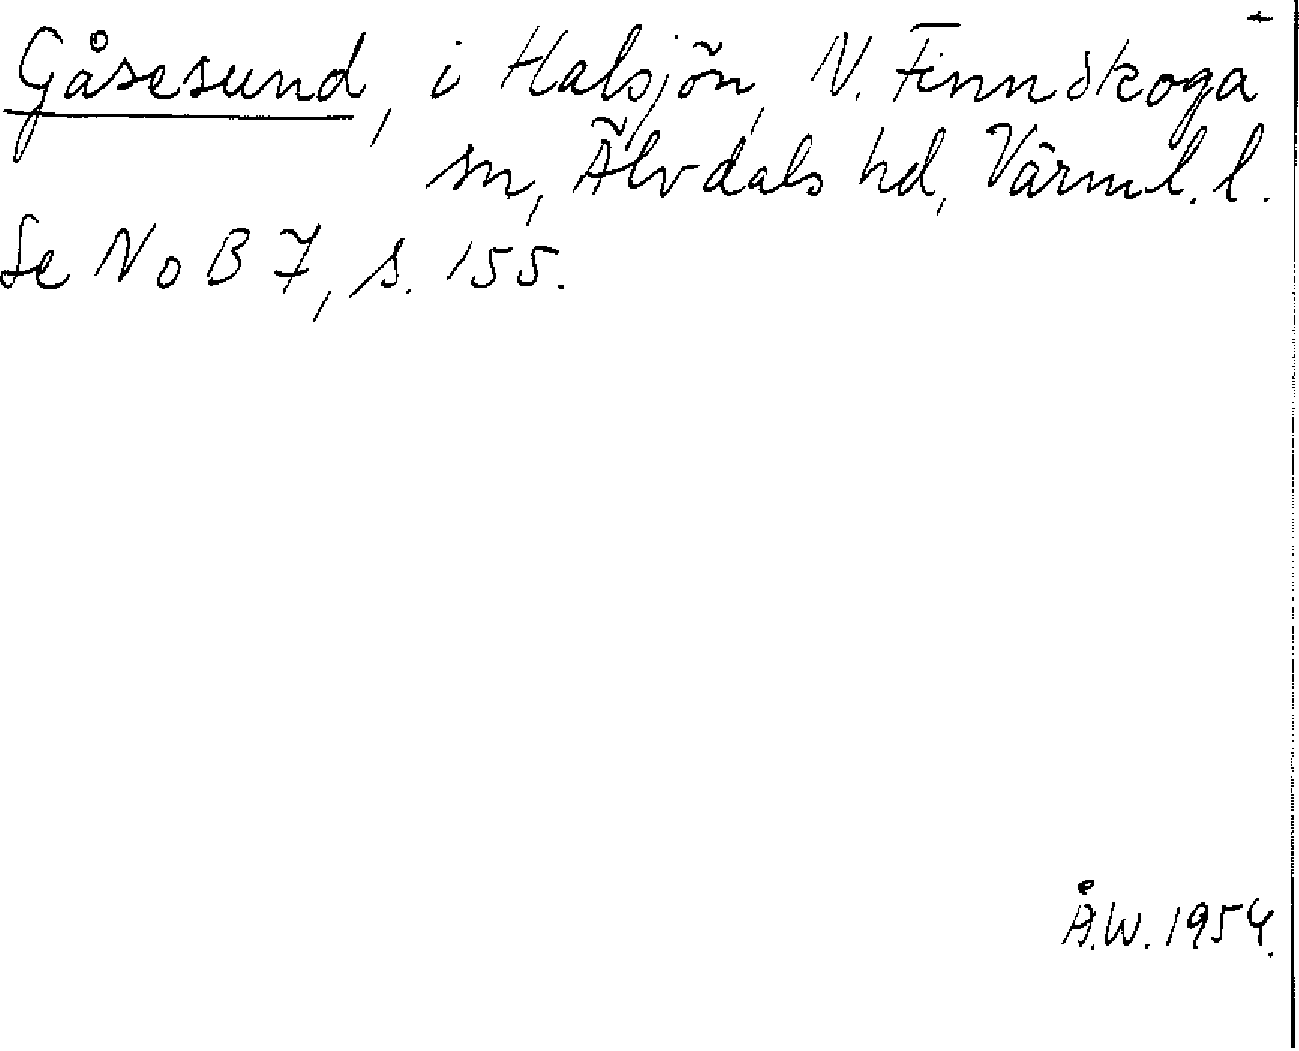 Gåsesund, i Halsjön, N. Finnskoga
sn, Älvdals hd, Värml. l.
Se NoB 7, s. 155.
Å.W. 1954.